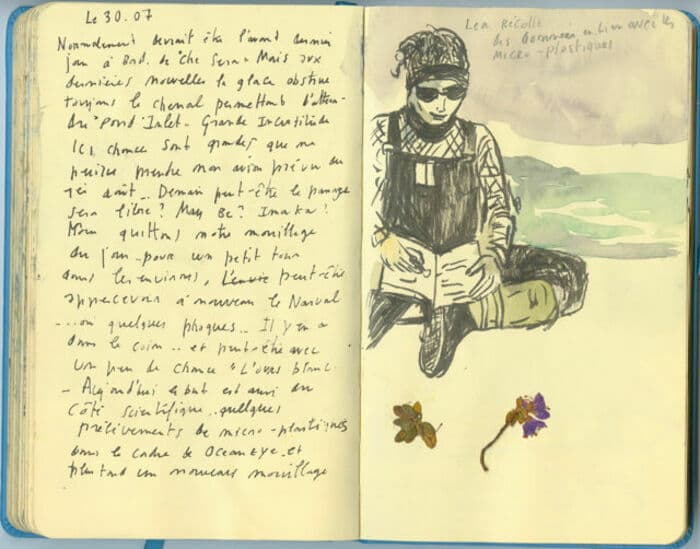 Le 30.07
Normalement devrait être l'avant dernier
jour à Bord. de "Che Sera" Mais aux
dernières nouvelles la glace obstrue
toujours le chenal permettant d'attein-
dre "Pond" Inlet. Grande Incertitude
Ici, chance sont grandes que ne
puisse prendre mon avion prévu au
août... Demain peut-être le passage
sera libre? May Be? Imaka!
Nous quittons notre mouillage
du jour pour un petit tour
dans les environs, peut-être
appercevoir à nouveau le Narval
... ou quelques phoques.. Il y en a
dans le coin... et peut-être avec
un peu de chance "L'ours blanc
- Aujourd'hui le but est aussi du
côté scientifique.. quelques
prélèvements de micro-plastiques
dans le cadre de OceanEye. et
plus tard un nouveau mouillage
Lea Récolte
des données en lien avec les
micro-plastiques